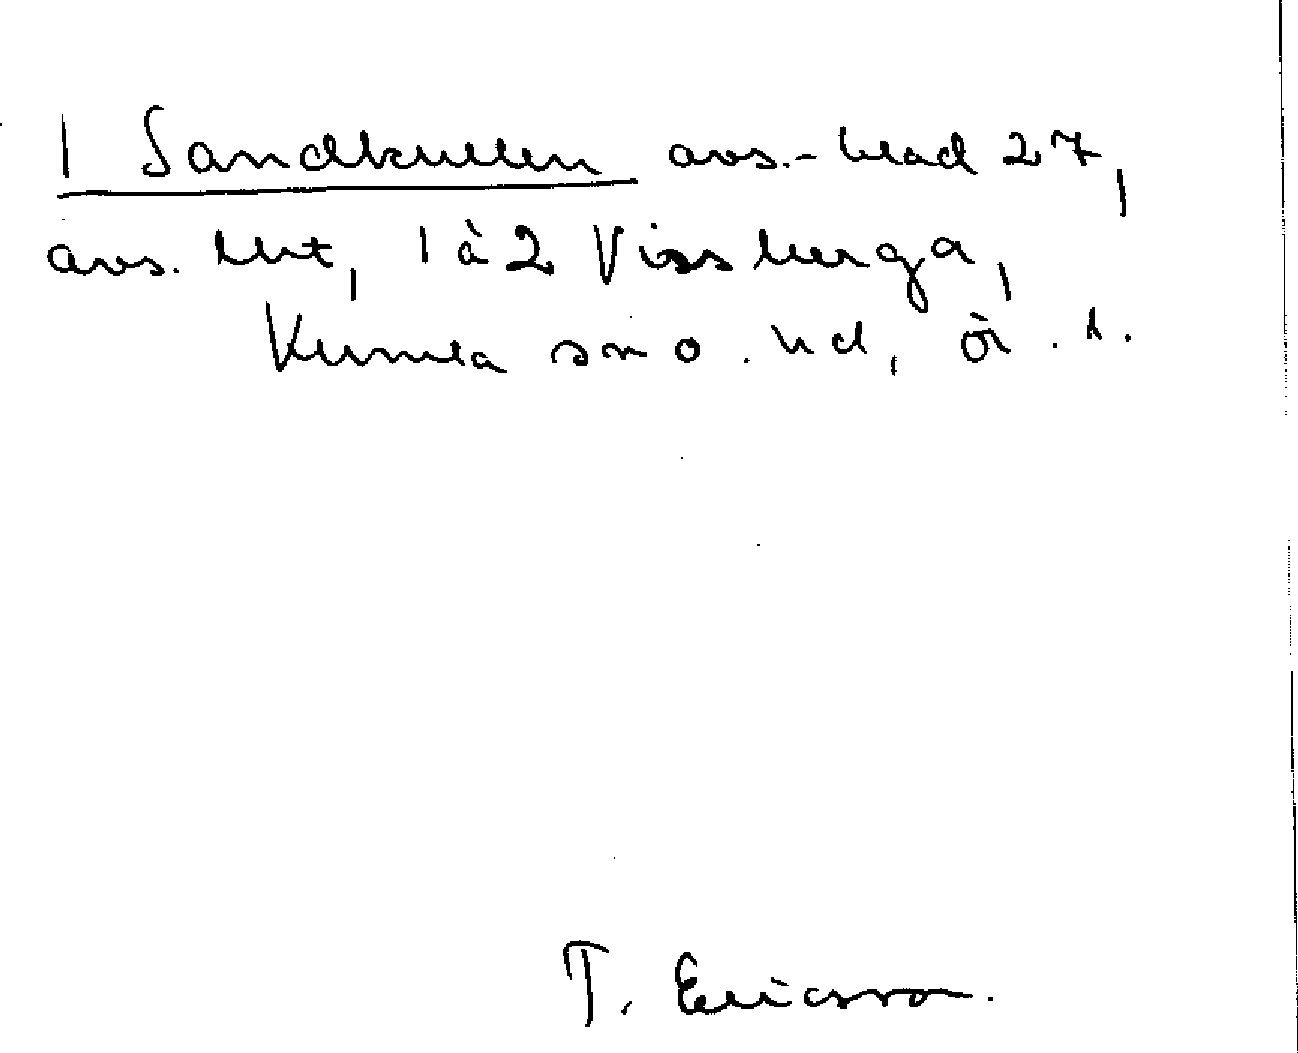 1 Sandkullen avs.-blad 27,
avs. lht, 1 à 2 Vissberga,
Kumla sn o. hd, ör. l.
T. Ericsson.